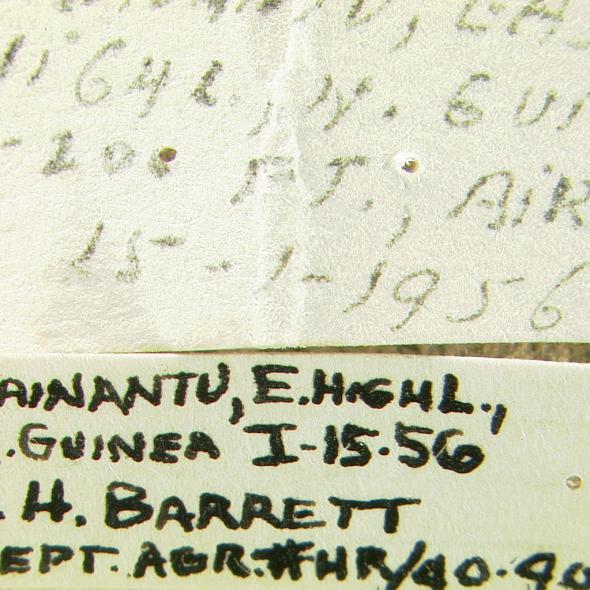 HIGHL., N. GUI
-200 FT., AIR
15-1-1956
AINANTU, E. HIGHL.,
. GUINEA I-15-56
. H. BARRETT
EPT. AGR. #HR/40-40